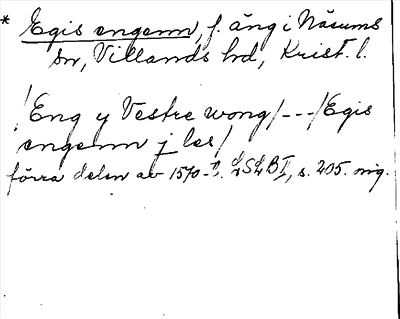 * Egis engenn, f. äng i Näsums
sn, Villands hd, Krist. l.
/Eng y Vestre wong/---/Egis
engenn j les/
förra delen av 1570-t. LSLB I, s. 205. orig.